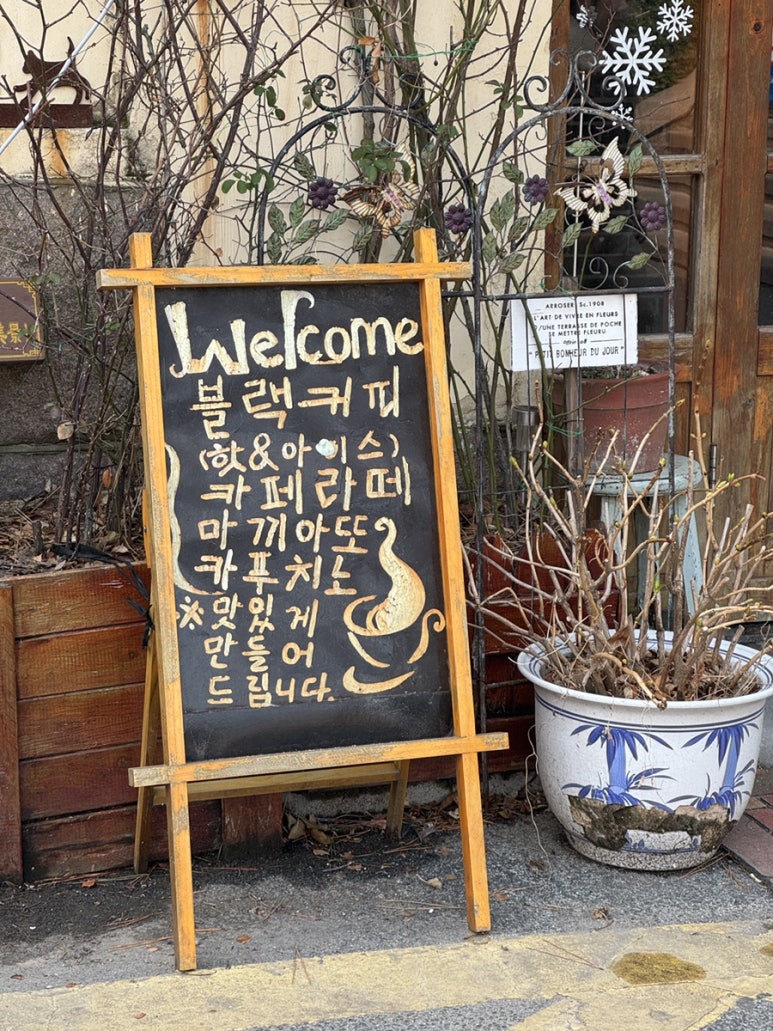 Welcome
블랙커피
(핫&아이스)
카페라떼
마끼아또
카푸치노
※맛있게
만들어
드립니다.
ARROSER Sc.1908
L'ART DE VIVRE EN FLEURS
D'UNE TERRASSE DE POCHE
SE METTRE FLEURU
" PETIT BONHEUR DU JOUR "